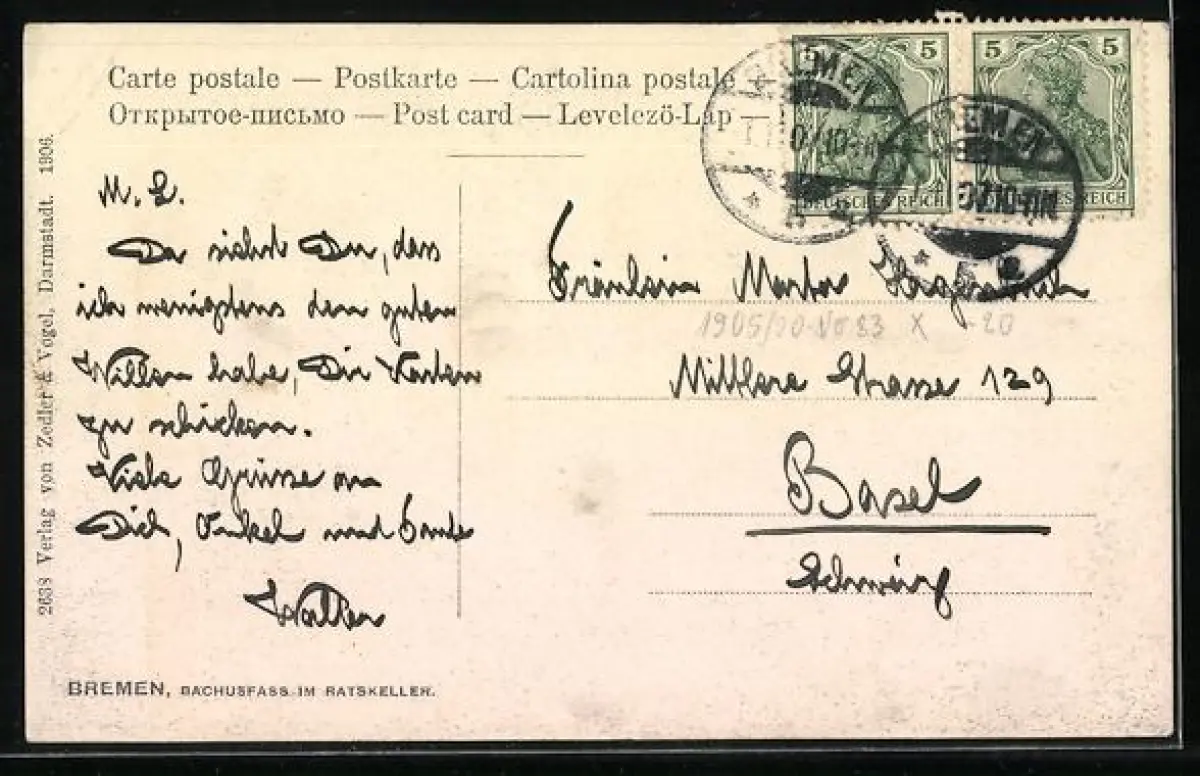 Carte postale — Postkarte — Cartolina postale
Открытое-письмо — Post card — Levelező-Lap —
5
5 5
DEUTSCHES REICH
REICH
BREMEN
BREMEN
M. L.
Da siehst Du, dass
ich wenigstens den guten
Willen habe, Dir Karten
zu schicken.
Viele Grüsse an
Dich, Onkel und Tante
Walter
Fräulein Martha
1905/
Mittlere Strasse 129
Basel
Schweiz
2638 Verlag von Zedler & Vogel, Darmstadt. 1906.
BREMEN, BACHUSFASS IM RATSKELLER.